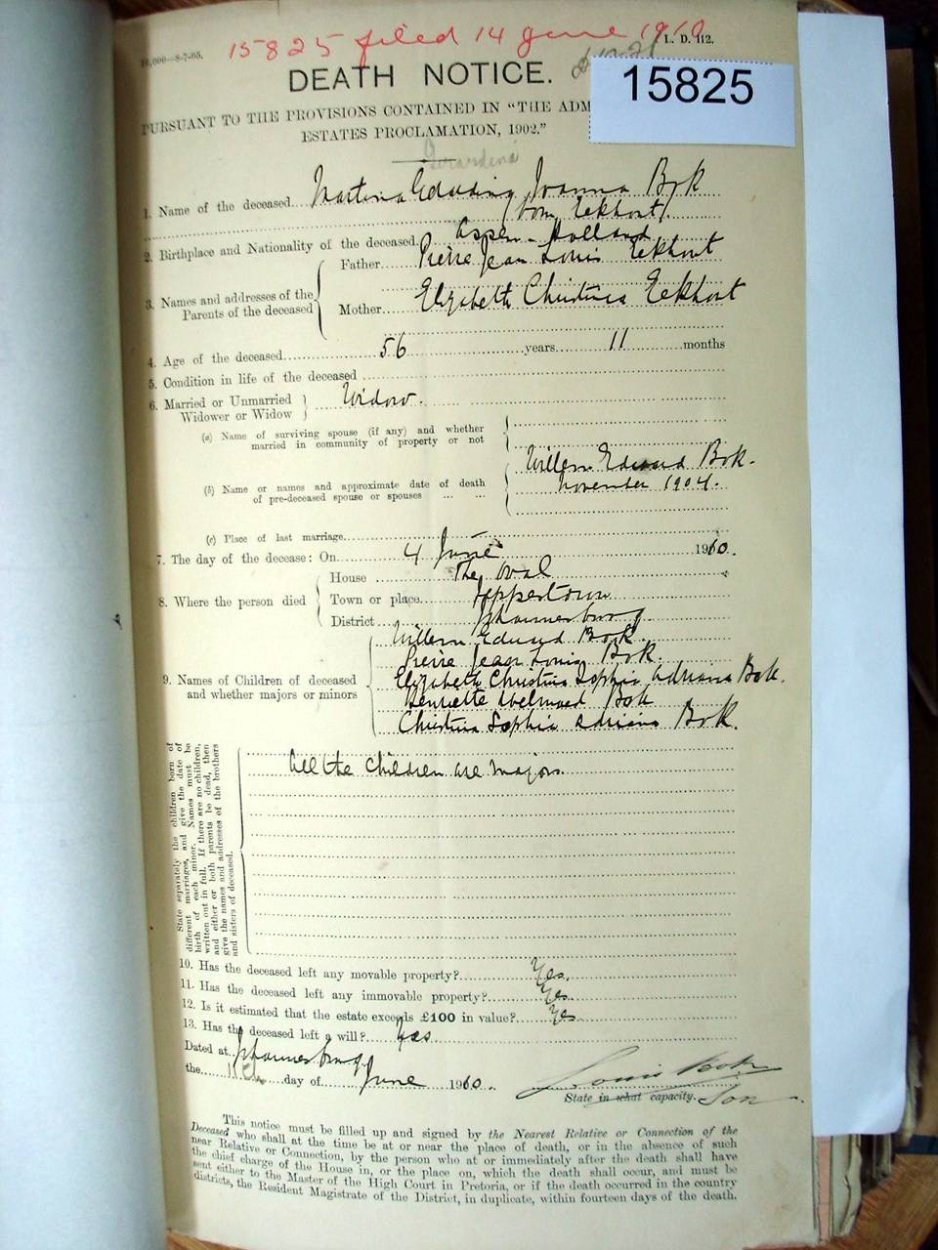 15825 filed 14 June 1910
L. D. 112.
15825
DEATH NOTICE.
PURSUANT TO THE PROVISIONS CONTAINED IN "THE ADM
ESTATES PROCLAMATION, 1902."
Gerardina
1. Name of the deceased Martina Johanna Bok
Eekhout
2. Birthplace and Nationality of the deceased. Assen - Holland
3. Names and addresses of the Parents of the deceased
Father Pierre Jean Louis Eekhout
Mother Elizabeth Christina Eekhout
4. Age of the deceased 56 years 11 months
5. Condition in life of the deceased
6. Married or Unmarried Widower or Widow Widow.
(a) Name of surviving spouse (if any) and whether married in community of property or not
(b) Name or names and approximate date of death of pre-deceased spouse or spouses
Willem Eduard Bok.
November 1904.
(c) Place of last marriage
7. The day of the decease: On 4 June 1910.
8. Where the person died
House The Oval
Town or place Jeppestown
District Johannesburg.
9. Names of Children of deceased and whether majors or minors
Willem Eduard Bok
Pierre Jean Louis Bok.
Elizabeth Christina Sophia Adriana Bok.
Henriette Bok
Christina Sophia Adriana Bok.
State separately the children born of
different marriages, and give the date of
birth of each minor. Names must be
written out in full. If there are no children,
and either or both parents be dead, then
give the names and addresses of the brothers
and sisters of deceased.
All the children are majors.
10. Has the deceased left any movable property? Yes.
11. Has the deceased left any immovable property? Yes
12. Is it estimated that the estate exceeds £100 in value? Yes
13. Has the deceased left a will? Yes
Dated at Johannesburg
the 11th day of June 1910.
Louis Bok
State in what capacity. Son
This notice must be filled up and signed by the Nearest Relative or Connection of the
Deceased who shall at the time be at or near the place of death, or in the absence of such
near Relative or Connection, by the person who at or immediately after the death shall have
the chief charge of the House in, or the place on, which the death shall occur, and must be
sent either to the Master of the High Court in Pretoria, or if the death occurred in the country
districts, the Resident Magistrate of the District, in duplicate, within fourteen days of the death.